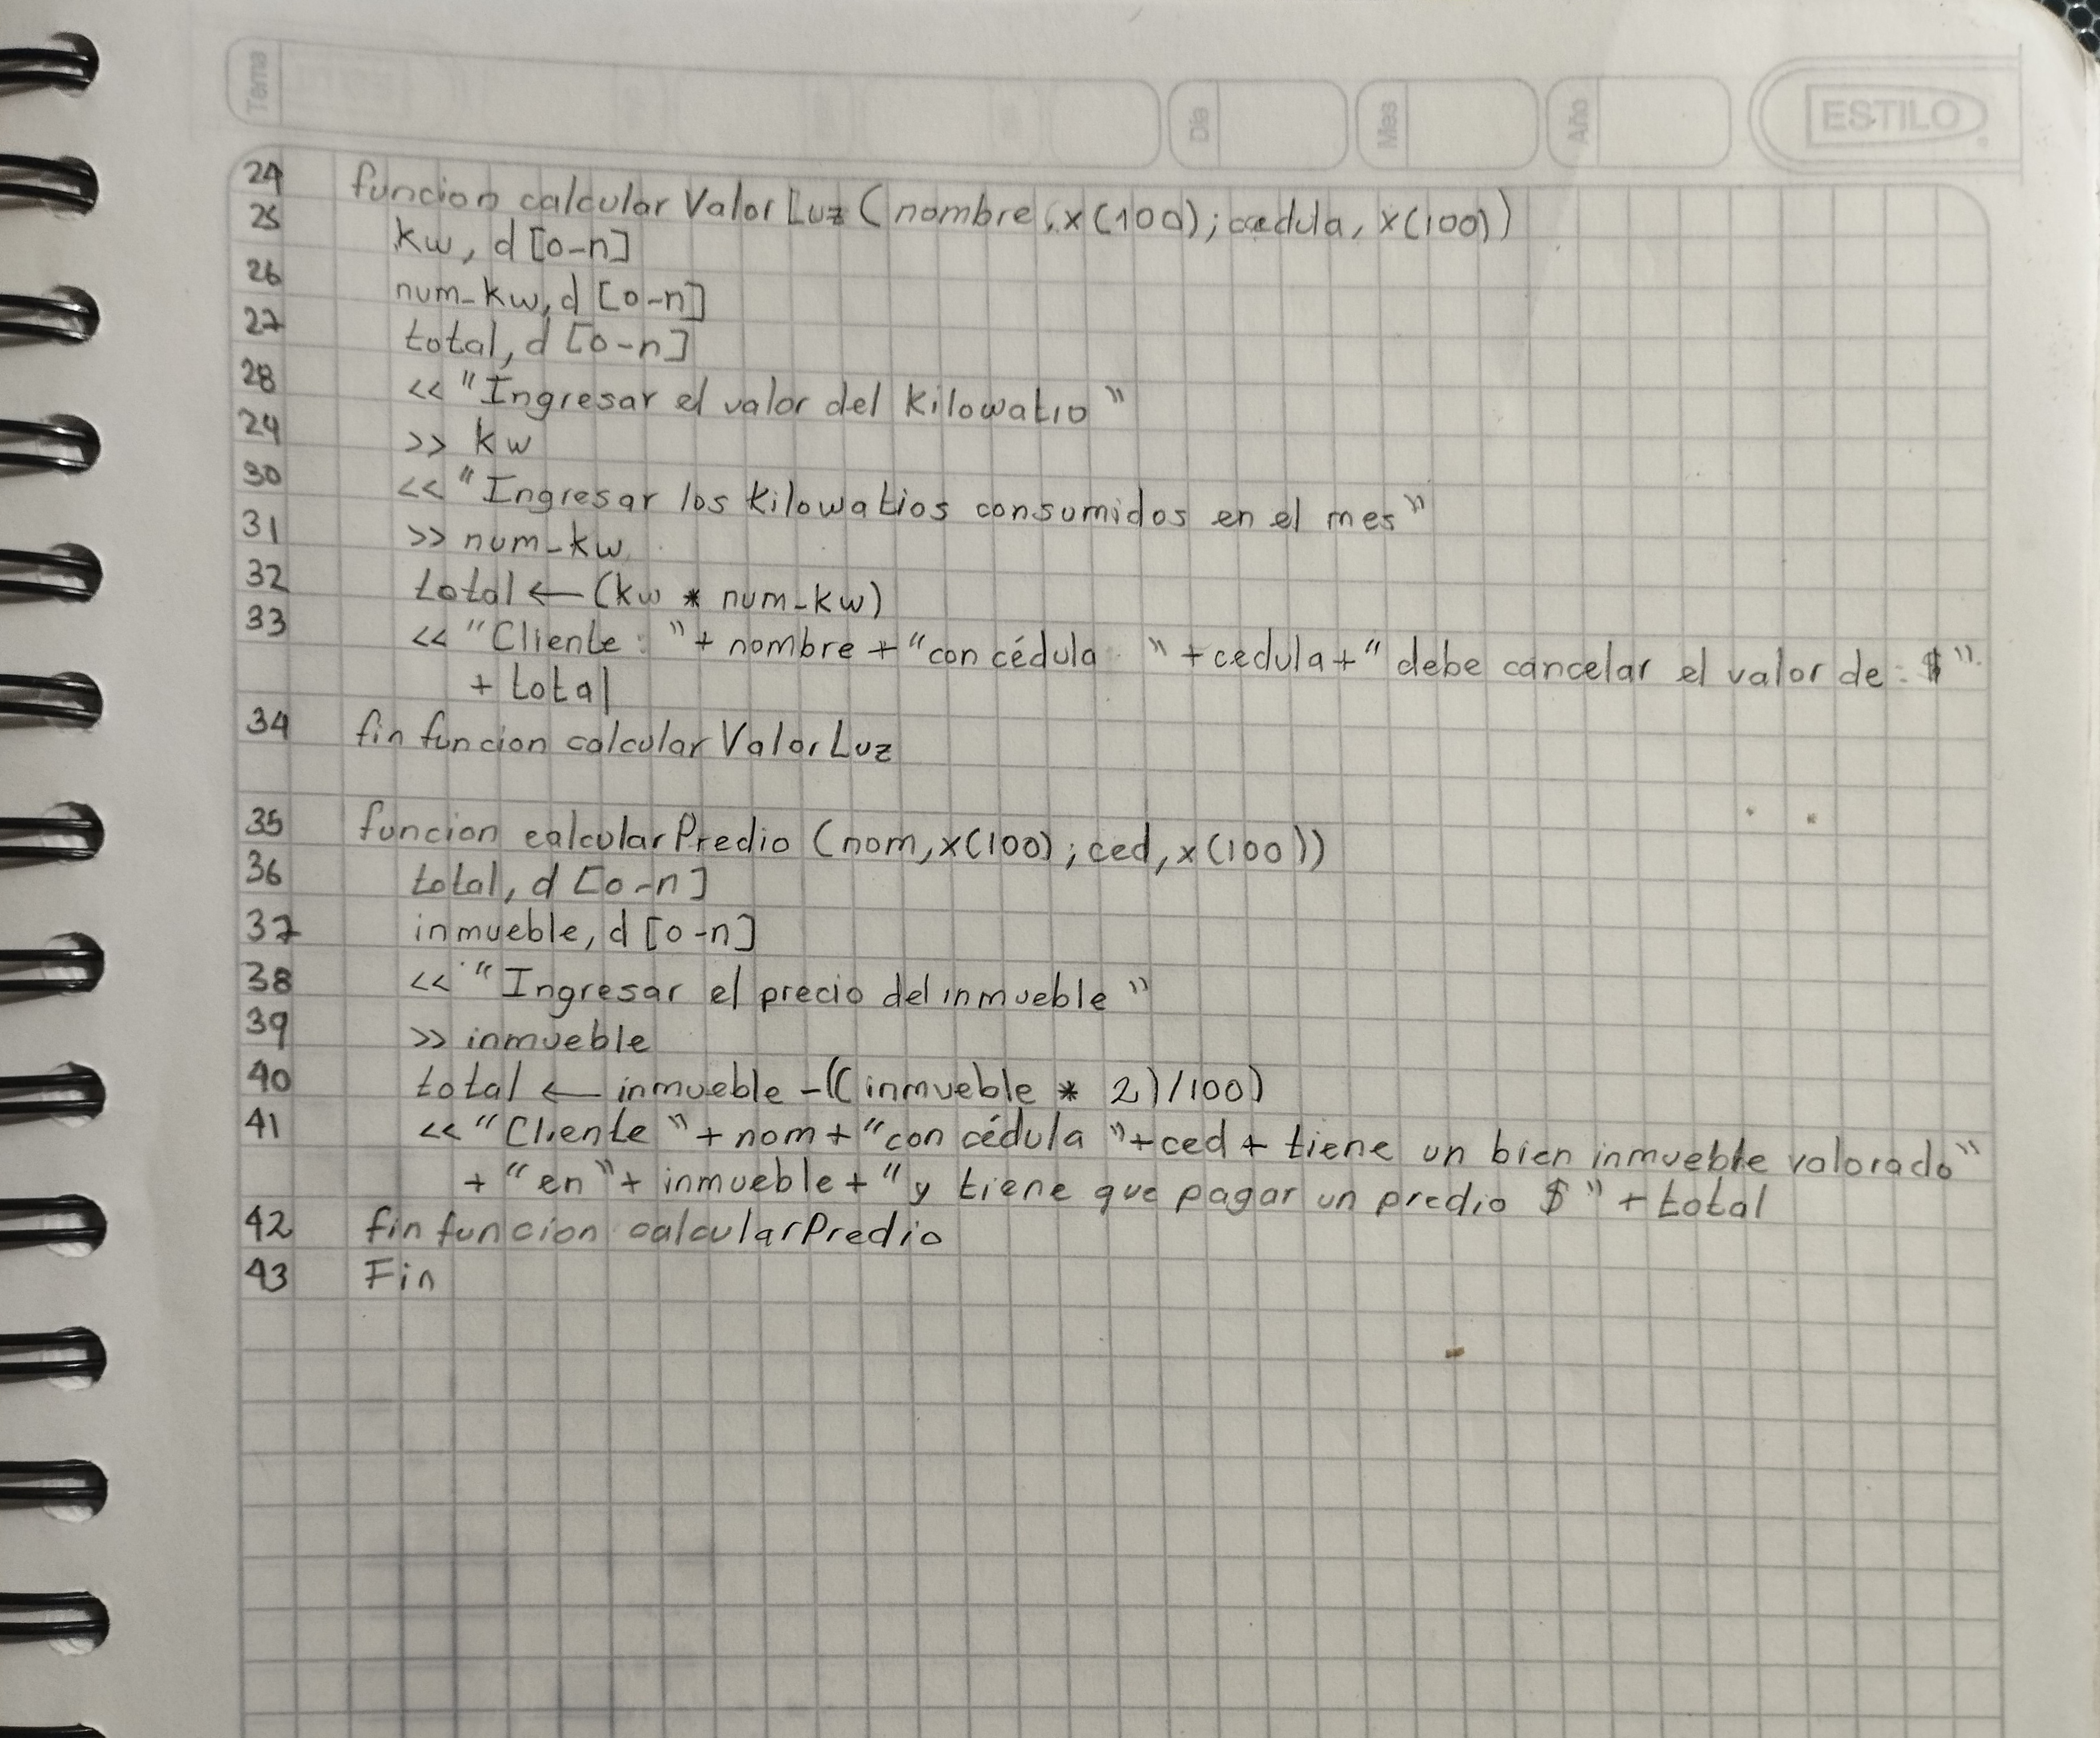 Tema
Día
Mes
Año
ESTILO
24 funcion calcular Valor Luz (nombre, x(100); cedula, x(100))
25 kw, d [0-n]
26 num-kw, d [0-n]
27 total, d [0-n]
28 << "Ingresar el valor del kilowatio"
29 >> kw
30 << "Ingresar los kilowatios consumidos en el mes"
31 >> num-kw
32 total ← (kw * num-kw)
33 << "Cliente: "+ nombre + "con cédula "+cedula+" debe cancelar el valor de: $"
+ total
34 fin funcion calcular ValorLuz
35 funcion calcularPredio (nom, x(100); ced, x(100))
36 total, d [0-n]
37 inmueble, d [0-n]
38 << "Ingresar el precio del inmueble"
39 >> inmueble
40 total ← inmueble -((inmueble * 2)/100)
41 << "Cliente "+ nom + "con cédula "+ced + tiene un bien inmueble valorado"
+ "en"+ inmueble + "y tiene que pagar un predio $" + total
42 fin funcion calcularPredio
43 Fin